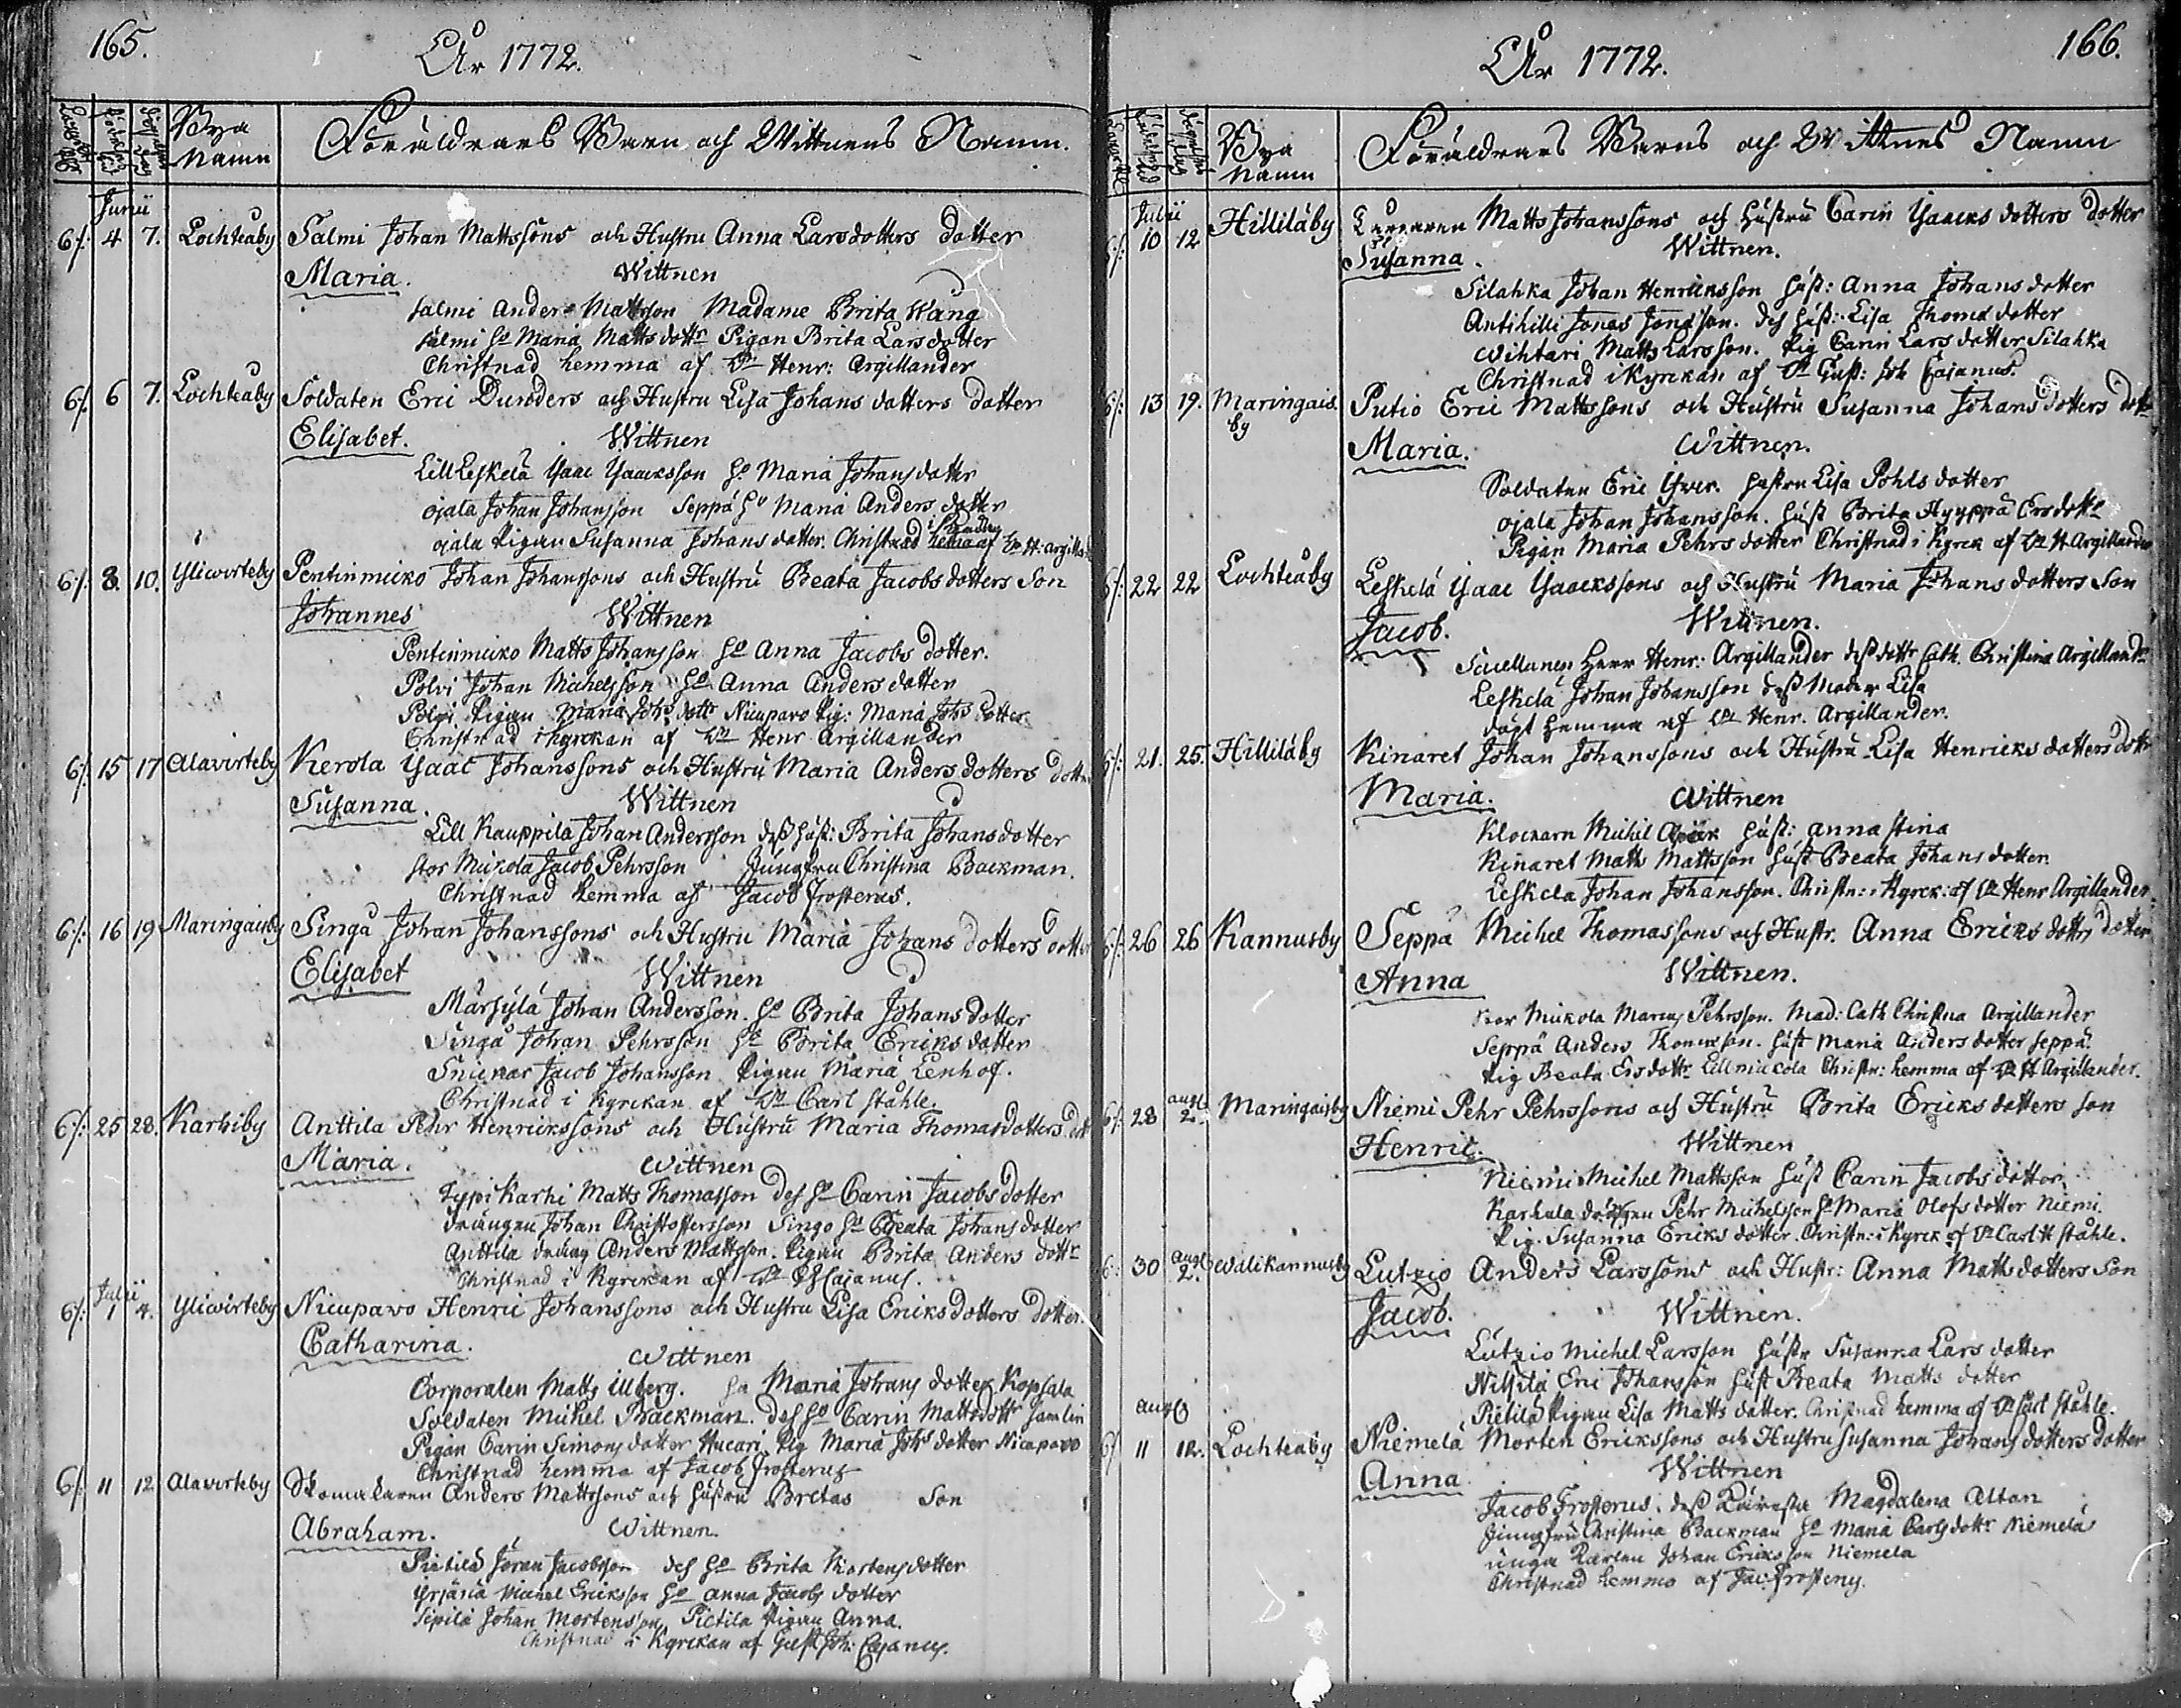 165.
År 1772.
Bya Namn
Föräldrars Barn och Wittnens Namn.
Junii
6/: 4 7. Lochteaby Salmi Johan Mattssons och Hustru Anna Larsdotters dotter
Maria. Wittnen
Salmi Anders Mattsson Madame Brita Wang
Salmi Ho Maria Matts dottr Pigan Brita Lars dotter
Christnad hemma af Dn Henr: Argillander
6/: 6 7. Lochteaby Soldaten Eric Dunders och Hustru Lisa Johans dotters dotter
Elisabet. Wittnen
Lill Leskelä Ysaac Ysaacksson Ho Maria Johans dotter
Ojala Johan Johansson Seppä Ho Maria Anders dotter
Ojala Pigan Susanna Johans dotter. Christnad af Dn H: Argilla
6/: 8. 10. Yliwirteby Pentinmicko Johan Johanssons och Hustru Beata Jacobs dotters Son
Johannes Wittnen
Pentinmicko Matts Johansson Ho Anna Jacobs dotter.
Polvi Johan Michelsson Ho Anna Anders dotter
Polvi Pigan Maria Johs dottr Nicuparo Pig: Maria Johs dotter
Christnad i Kyrckan af Dn Henr Argillander
6/: 15 17 Alavirteby Kerola Ysaac Johanssons och Hustru Maria Anders dotters dotter
Susanna. Wittnen
Lill Kauppila Johan Andersson dess Hust: Brita Johansdotter
Stor Mickola Jacob Pehrsson Jungfru Christina Backman.
Christnad hemma af Jacob Frosterus.
6/: 16 19 Maringaisby Singå Johan Johanssons och Hustru Maria Johans dotters dotter
Elisabet Wittnen
Märsylä Johan Andersson. Ho Brita Johans dotter
Singå Johan Pehrsson Ho Brita Ericks dotter
Snickar Jacob Johansson Pigan Maria Lenhof.
Christnad i Kyrckan af Dn Carl Ståhle.
6/: 25 28. Karhiby Anttila Pehr Henrickssons och Hustru Maria Thomasdotters dott
Maria. Wittnen
Typi Karhi Matts Thomasson des Ho Carin Jacobs dotter
drängen Johan Christoffersson Singo Ho Beata Johans dotter
Anttila dräng Anders Mattsson. Pigan Brita Anders dottr
Christnad i Kyrckan af Dn Cajanus.
Julii
6/: 1 4. Yliwirteby Nicuparo Henric Johanssons och Hustru Lisa Ericks dotters dotter.
Catharina. Wittnen
Corporalen Matts Ulberg. Ho Maria Johans dotter Kopsala
Soldaten Michel Backman. des Ho Carin Matts dottr Jamlin
Pigan Carin Simons dotter Hucari Pig Maria Johs dotter Nicuparo
Christnad hemma af Jacob Frosterus
6/: 11 12 Alavirteby Skomakaren Anders Mattssons och Hustru Britas Son
Abraham. Wittnen.
Pietilä Jöran Jacobsson des Ho Brita Mortens dotter
Yrjänä Michel Ericksson Ho Anna Jacobs dotter
Sipilä Johan Mortensson, Pietilä Pigan Anna.
Christnad i Kyrckan af Gust. Joh: Cajanus.
166.
År 1772.
Bya Namn
Föräldrars Barns och Wittnes Namn
Julii
6/: 10 12 Hilliläby Matts Johanssons och Hustru Carin Ysaacks dotters dotter
Susanna. Wittnen.
Silahka Johan Henricksson Hust: Anna Johans dotter
Antihilli Jonas Jonasson. des Hust: Lisa Thoms dotter
Wihtari Matts Larsson. Pig Carin Lars dotter Silahka
Christnad i Kyrckan af Dn Gust: Joh Cajanus.
6/: 13 19. Maringais by Putio Eric Mattssons och Hustru Susanna Johans dotters dottr
Maria. Wittnen.
Soldaten Eric Ifver. Hustru Lisa Pohls dotter
Ojala Johan Johansson. Hust Brita Hyyppä Ersdottr
Pigan Maria Pehrs dotter Christnad i Kyrck af Dn H Argillander
6/: 22 22 Lochteåby Leskelä Ysaac Ysaackssons och Hustru Maria Johans dotters Son
Jacob. Wittnen.
Capellanen Herr Henr: Argillander dess dottr Cath. Christina Argillandr
Leskelä Johan Johansson dess Moder Lisa
döpt hemma af Dn Henr. Argillander.
6/: 21. 25. Hilliläby Kinaret Johan Johanssons och Hustru Lisa Henricks dotters dottr
Maria. Wittnen
Klockarn Michel Hust: Anna Stina
Kinaret Matts Mattsson Hust Beata Johans dotter
Leskela Johan Johansson. Christn: i Kyrck: af Dn Henr Argillander.
6/: 26 26 Kannusby Seppä Michel Thomassons och Hustr. Anna Ericks dottrs dotter
Anna Wittnen.
Stor Mickola Marcus Pehrsson. Mad: Cath Christina Argillander
Seppä Anders Thomasson. Hust Maria Anders dotter Seppä.
Pig Beata Ersdottr Lillmickola Christn: hemma af Dn H Argillander.
6/: 28 augt 2. Maringaisby Niemi Pehr Pehrssons och Hustru Brita Ericks dotters Son
Henric. Wittnen
Niemi Michel Mattsson Hust Carin Jacobs dotter
Karhula drängen Pehr Michelsson Ho Maria Olofs dotter Niemi.
Pig. Susanna Ericks dotter. Christn: i Kyrck af Dn Carl H Ståhle.
6: 30 augt 2. Wälikannusby Lutzio Anders Larssons och Hustr: Anna Matts dotters Son
Jacob. Wittnen.
Lutzio Michel Larsson Hustr Susanna Lars dotter
Nilsilä Eric Johansson Hust Beata Matts dotter
Pietilä Pigan Lisa Matts dotter. Christnad hemma af Dn Carl Ståhle.
augt
6/ 11 12. Lochteaby Niemelä Morten Erickssons och Hustru Susanna Johans dotters dotter
Anna Wittnen
Jacob Frosterus. dess Käresta Magdalena Altan
Jungfru Christina Backman Ho Maria Carls dottr Niemelä
unga Karlen Johan Ericksson Niemela
Christnad hemma af Jac: Frosterus.